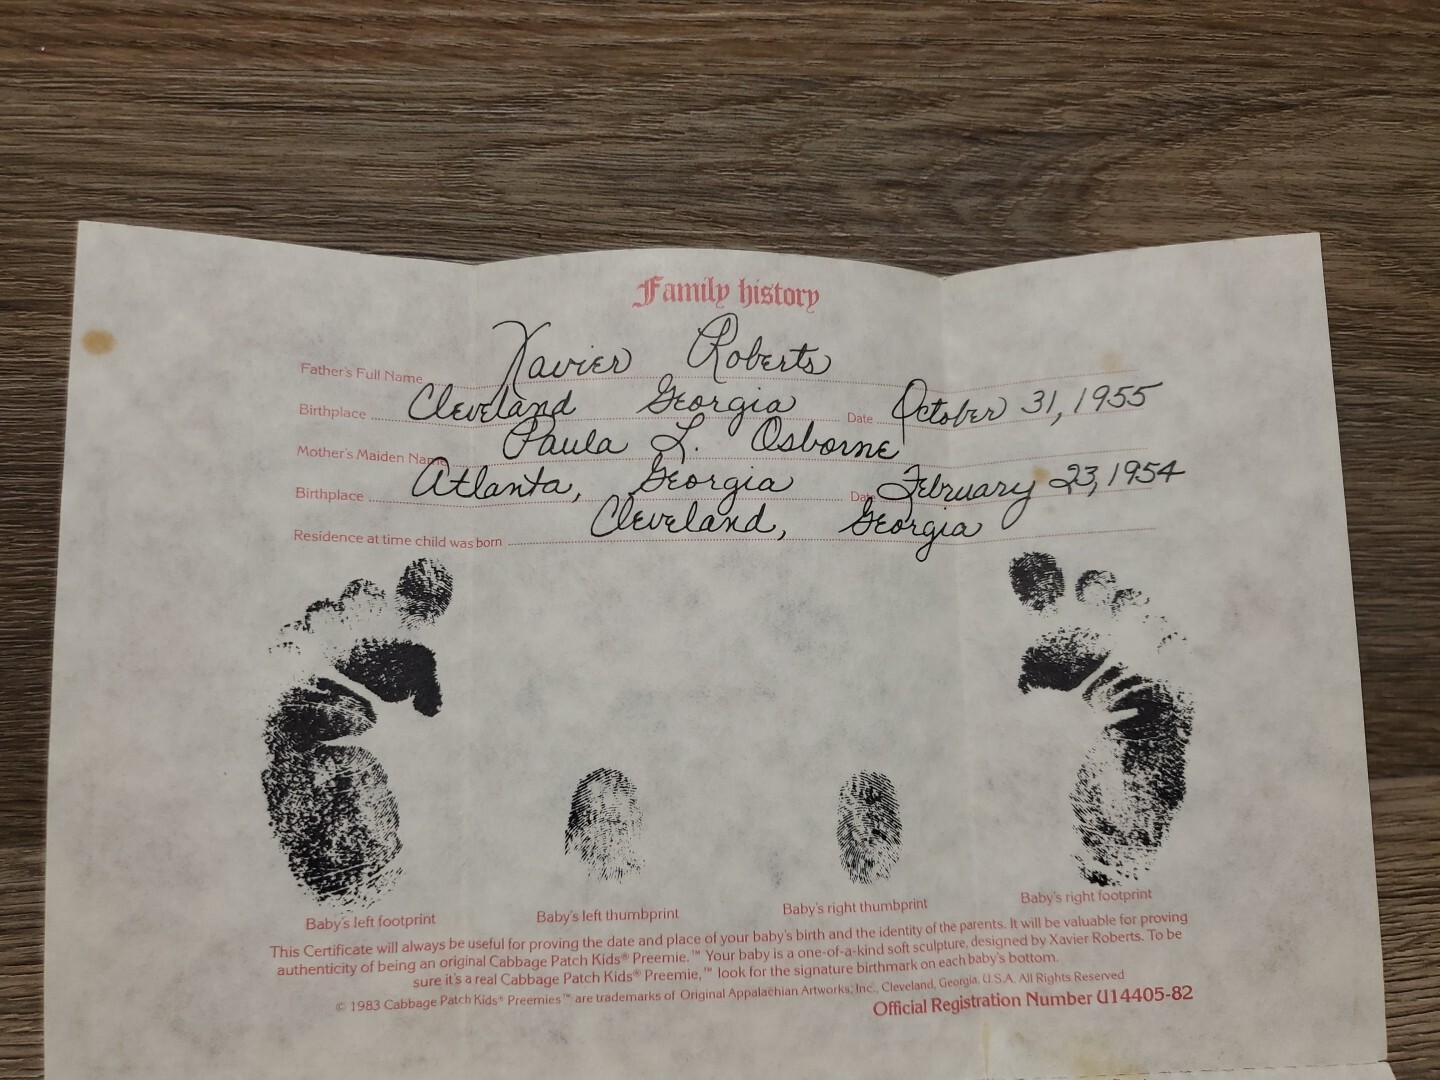 Family history
Father's Full Name Xavier Roberts
Birthplace Cleveland Georgia Date October 31, 1955
Mother's Maiden Name Paula L. Osborne
Birthplace Atlanta, Georgia Date February 23, 1954
Residence at time child was born Cleveland, Georgia
Baby's left footprint Baby's left thumbprint Baby's right thumbprint Baby's right footprint
This Certificate will always be useful for proving the date and place of your baby's birth and the identity of the parents. It will be valuable for proving
authenticity of being an original Cabbage Patch Kids® Preemie.™ Your baby is a one-of-a-kind soft sculpture, designed by Xavier Roberts. To be
sure it's a real Cabbage Patch Kids® Preemie,™ look for the signature birthmark on each baby's bottom.
© 1983 Cabbage Patch Kids® Preemies™ are trademarks of Original Appalachian Artworks, Inc., Cleveland, Georgia, U.S.A. All Rights Reserved
Official Registration Number U14405-82